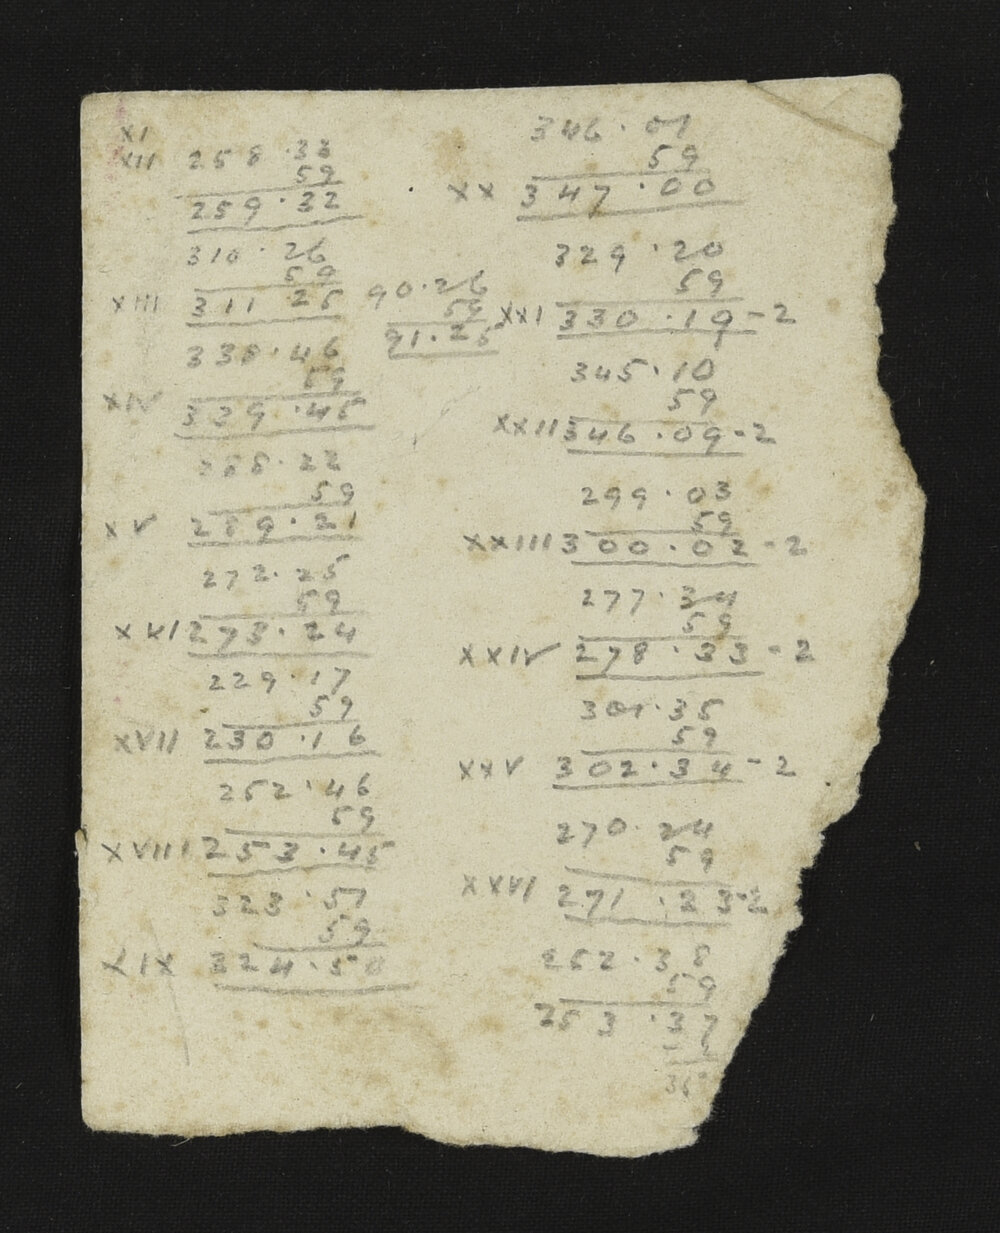 XI
XII 258.33
59
259.32
310.26
59
XIII 311 25
90.26
59
91.25
338.46
59
XIV 339.45
288.22
59
XV 289.21
272.25
59
XVI 273.24
229.17
59
XVII 230.16
252.46
59
XVIII 253.45
323.51
59
XIX 324.50
346.01
59
XX 347.00
329.20
59
XXI 330.19-2
345.10
59
XXII 346.09-2
299.03
59
XXIII 300.02-2
277.34
59
XXIV 278.33-2
301.35
59
XXV 302.34-2
270.24
59
XXVI 271.23-2
252.38
59
253.37